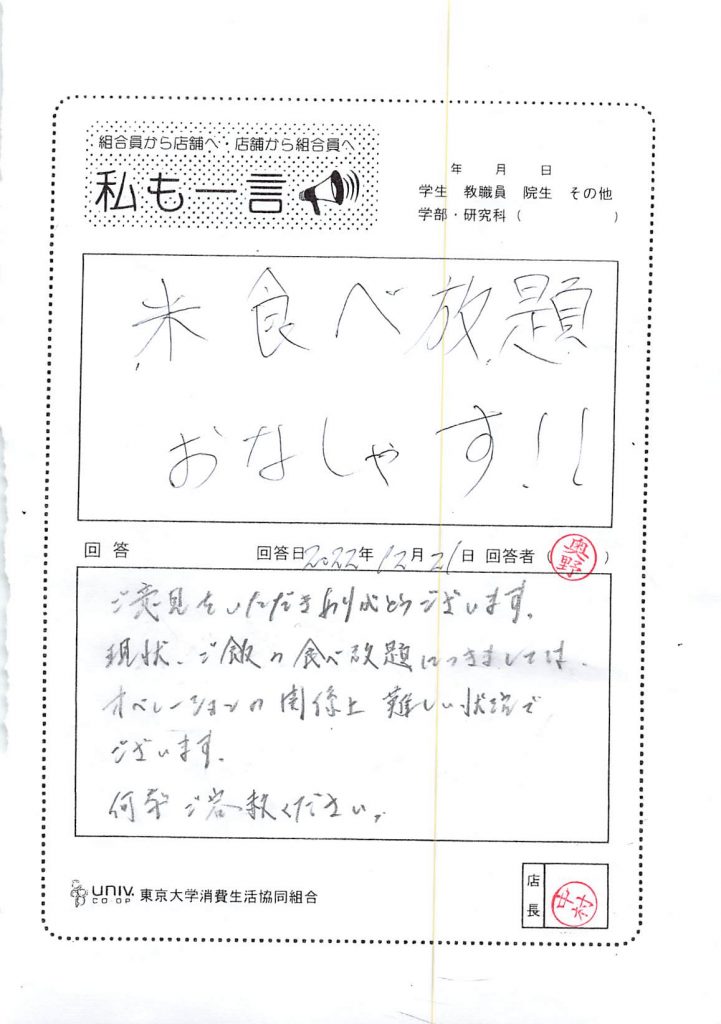 組合員から店舗へ・店舗から組合員へ
私も一言
年 月 日
学生 教職員 院生 その他
学部・研究科( )
米食べ放題
おなしゃす!!
回答 回答日2022年12月21日 回答者(奥野)
ご意見をいただきありがとうございます。
現状、ご飯の食べ放題につきましては、
オペレーションの関係上難しい状況で
ございます。
何卒ご容赦ください。
UNIV. CO-OP 東京大学消費生活協同組合
店長 中村